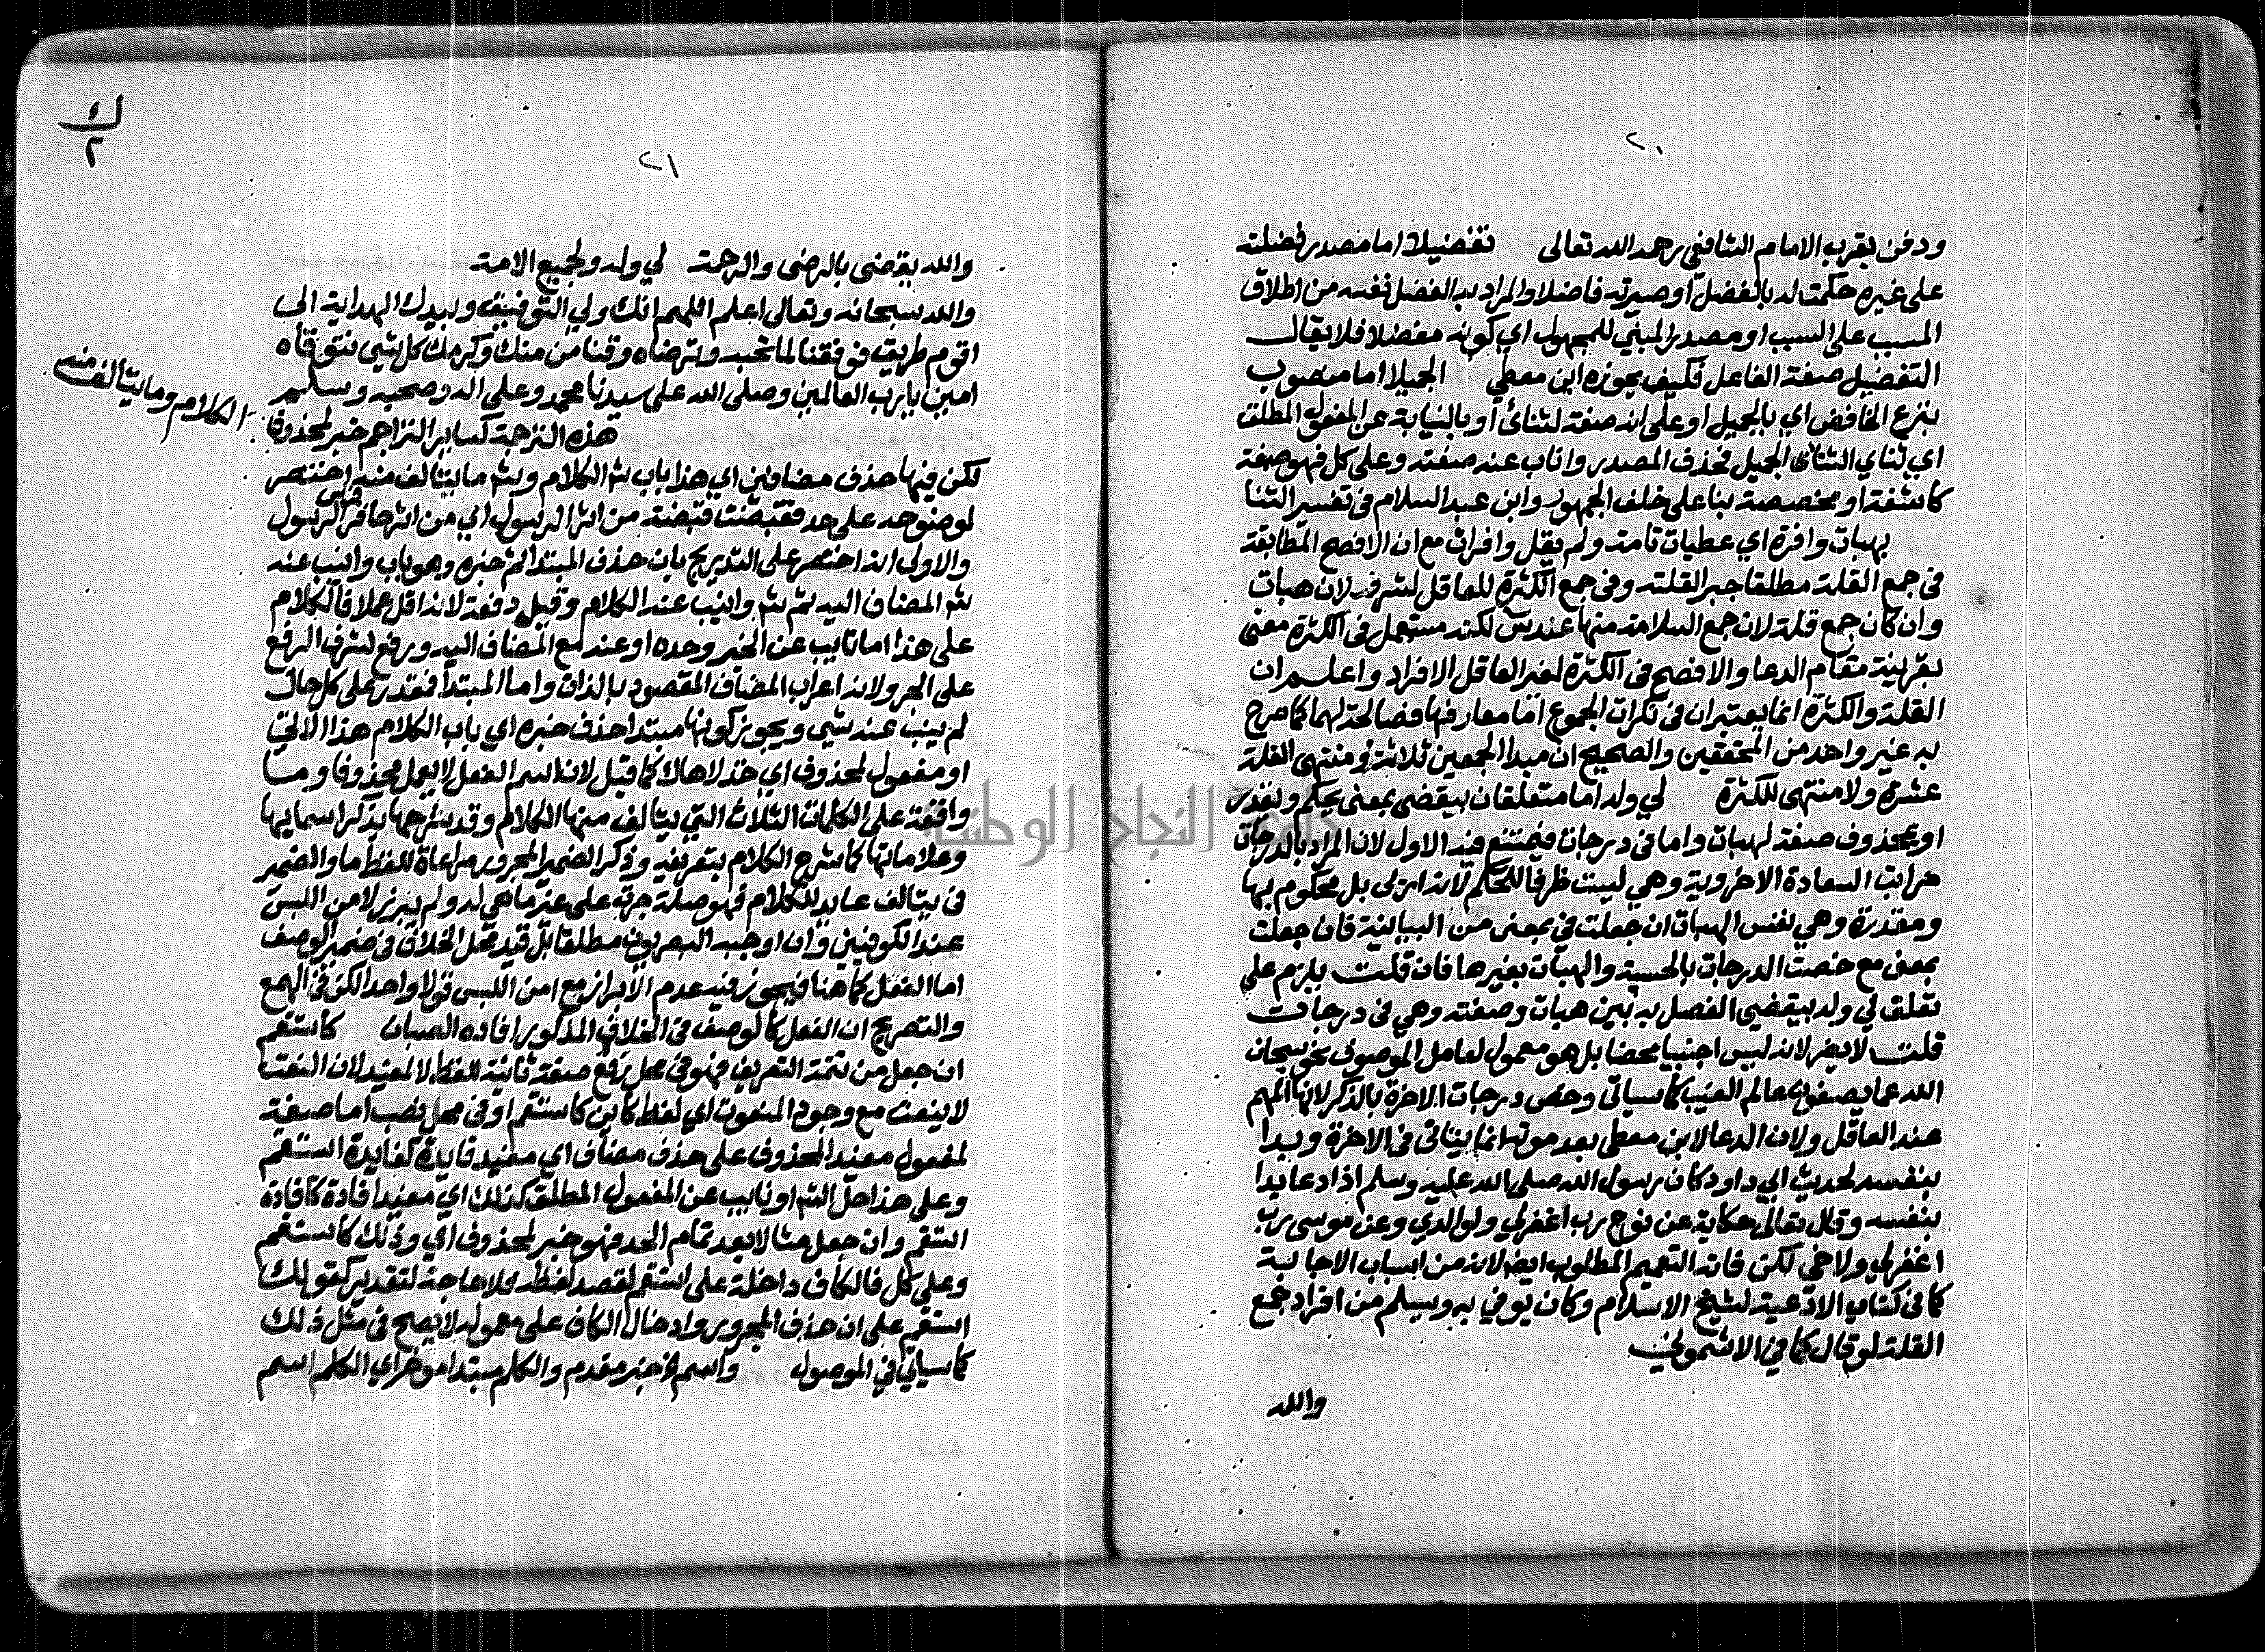 ٢٠
ودفن بقرب الامام الشافعي رحمه الله تعالى تفضيلا اما مصدر فضلته
على غيره حكمت له بالفضل او صيرته فاضلا والمراد به الفضل نفسه من اطلاق
المسبب على السبب او مصدر المبني للمجهول اي كونه مفضلا فلا يقال
التفضيل صفة الفاعل فكيف يحوزه ابن معطي الجميلا اما منصوب
بنزع الخافض اي بالجميل او على انه صفة لثنائي او بالنيابة عن المفعول المطلق
اي ثناي الثناء الجميل فحذف المصدر واناب عنه صفته وعلى كل فهو صفة
كاشفة او مخصصة بنا على خلف الجمهور وابن عبد السلام في تفسير الثنا
بهبات وافرة اي عطيات تامة ولم يقل وافرات مع ان الافصح المطابقة
في جمع القلة مطلقا جبر القلته وفي جمع الكثرة للعاقل لشرفه لان هبات
وان كان جمع قلة لان جمع السلامة منها عند س لكنه مستعمل في الكثرة معنى
بقرينة مقام الدعا والافصح في الكثرة لغير العاقل الافراد واعلم ان
القلة والكثرة انما يعتبران في نكرات الجموع اما معارفها فصالحة لهما كما صرح
به غير واحد من المحققين والصحيح ان مبدا الجمعين ثلاثة ومنتهى القلة
عشرة ولا منتهى للكثرة لي وله اما متعلقان بيقضى بمعنى يحكم ويقدر
او بمحذوف صفة لهبات واما في درجات فيمتنع فيه الاول لان المراد بالدرجات
مراتب السعادة الاخروية وهي ليست ظرفا للحكم لانه ازلى بل محكوم بها
ومقدرة وهي نفس الهبات ان جعلت في بمعنى من البيانية فان جعلت
بمعنى مع خصت الدرجات بالحسية والهبات بغيرها فان قلت يلزم على
تعلق لي وله بيقضى الفصل به بين هبات وصفته وهي في درجات
قلت لا يضر لانه ليس اجنبيا محضا بل هو معمول لعامل الموصوف نحو سبحان
الله عما يصفون عالم الغيب كما سياتى وخص درجات الاخرة بالذكر لانها المهم
عند العاقل ولان الدعا لابن معطي بعد موته انما يتاتى في الاخرة وبدا
بنفسه لحديث ابي داود كان رسول الله صلى الله عليه وسلم اذا دعا بدا
بنفسه وقال تعالى حكاية عن نوح رب اغفر لي ولوالدي وعن موسى رب
اغفر لي ولاخي لكن فاته التعميم المطلوب ايضا لانه من اسباب الاجابة
كما في كتاب الادعية لشيخ الاسلام وكان يوفي به وسلم من افراد جمع
القلة لو قال كما في الاشموني
والله
٢١
والله يقضى بالرضى والرحمة لي وله ولجميع الامة
والله سبحانه وتعالى اعلم اللهم انك ولي التوفيق وبيدك الهداية الى
اقوم طريق فوفقنا لما تحبه وترضاه وقنا من منك وكرمك كل شي نتوقاه
امين يا رب العالمين وصلى الله على سيدنا محمد وعلى اله وصحبه وسلم
الكلام وما يتالف منه
هذه الترجمة كساير التراجم خبر لمحذوف
لكن فيها حذف مضافين اي هذا باب شرح الكلام وشرح ما يتالف منه اختصر
لوضوحه على حد فقبضت قبضة من اثر الرسول اي من اثر حافر فرس الرسول
والاولى انه اختصر على التدريج بان حذف المبتدا ثم خبره وهو باب وانيب عنه
شرح المضاف اليه ثم شرح وانيب عنه الكلام وقيل دفعة لانه اقل عملا فالكلام
على هذا اما نايب عن الخبر وحده او عنه مع المضاف اليه ورفع لشرف الرفع
على الجر ولانه اعراب المضاف المقصود بالذات واما المبتدا فمقدر على كل حال
لم ينب عنه شي ويجوز كونها مبتدا حذف خبره اي باب الكلام هذا الاتي
او مفعول لمحذوف اي خذ لا هاك كما قيل لان اسم الفعل لا يعمل محذوفا وما
واقعة على الكلمات الثلاث التي يتالف منها الكلام وقد شرحها بذكر اسمايها
وعلاماتها كما شرح الكلام بتعريفه وذكر الضمير المجرور مراعاة للفظ ما والضمير
في يتالف عايد للكلام فهو صلة جرت على غير ما هي له ولم يبرز لامن اللبس
عند الكوفيين وان اوجبه البصريون مطلقا بل قيد محل الخلاف في ضمير الوصف
اما الفعل كما هنا فيجوز فيه عدم الابراز مع امن اللبس قولا واحدا لكن في الهمع
والتصريح ان الفعل كالوصف في الخلاف المذكور افاده الصبان كاستقم
ان جعل من تتمة التعريف فهو في محل رفع صفة ثانية للفظ لا لمفيد لان النعت
لا ينعت مع وجود المنعوت اي لفظ كاين كاستقم او في محل نصب اما صفة
لمفعول مفيد المحذوف على حذف مضاف اي مفيد فايدة كفايدة استقم
وعلى هذا حل الشرح او نايب عن المفعول المطلق كذلك اي مفيد افادة كافادة
استقم وان جعل مثالا بعد تمام الحد فهو خبر لمحذوف اي وذلك كاستقم
وعلى كل فالكاف داخلة على استقم لقصد لفظه ولا حاجة لتقدير كقولك
استقم على ان حذف المجرور وادخال الكاف على معموله لا يصح في مثل ذلك
كما سياتي في الموصول واسم الخ خبر مقدم والكلم مبتدا موخر اي الكلم اسم
جامعة النجاح الوطنية